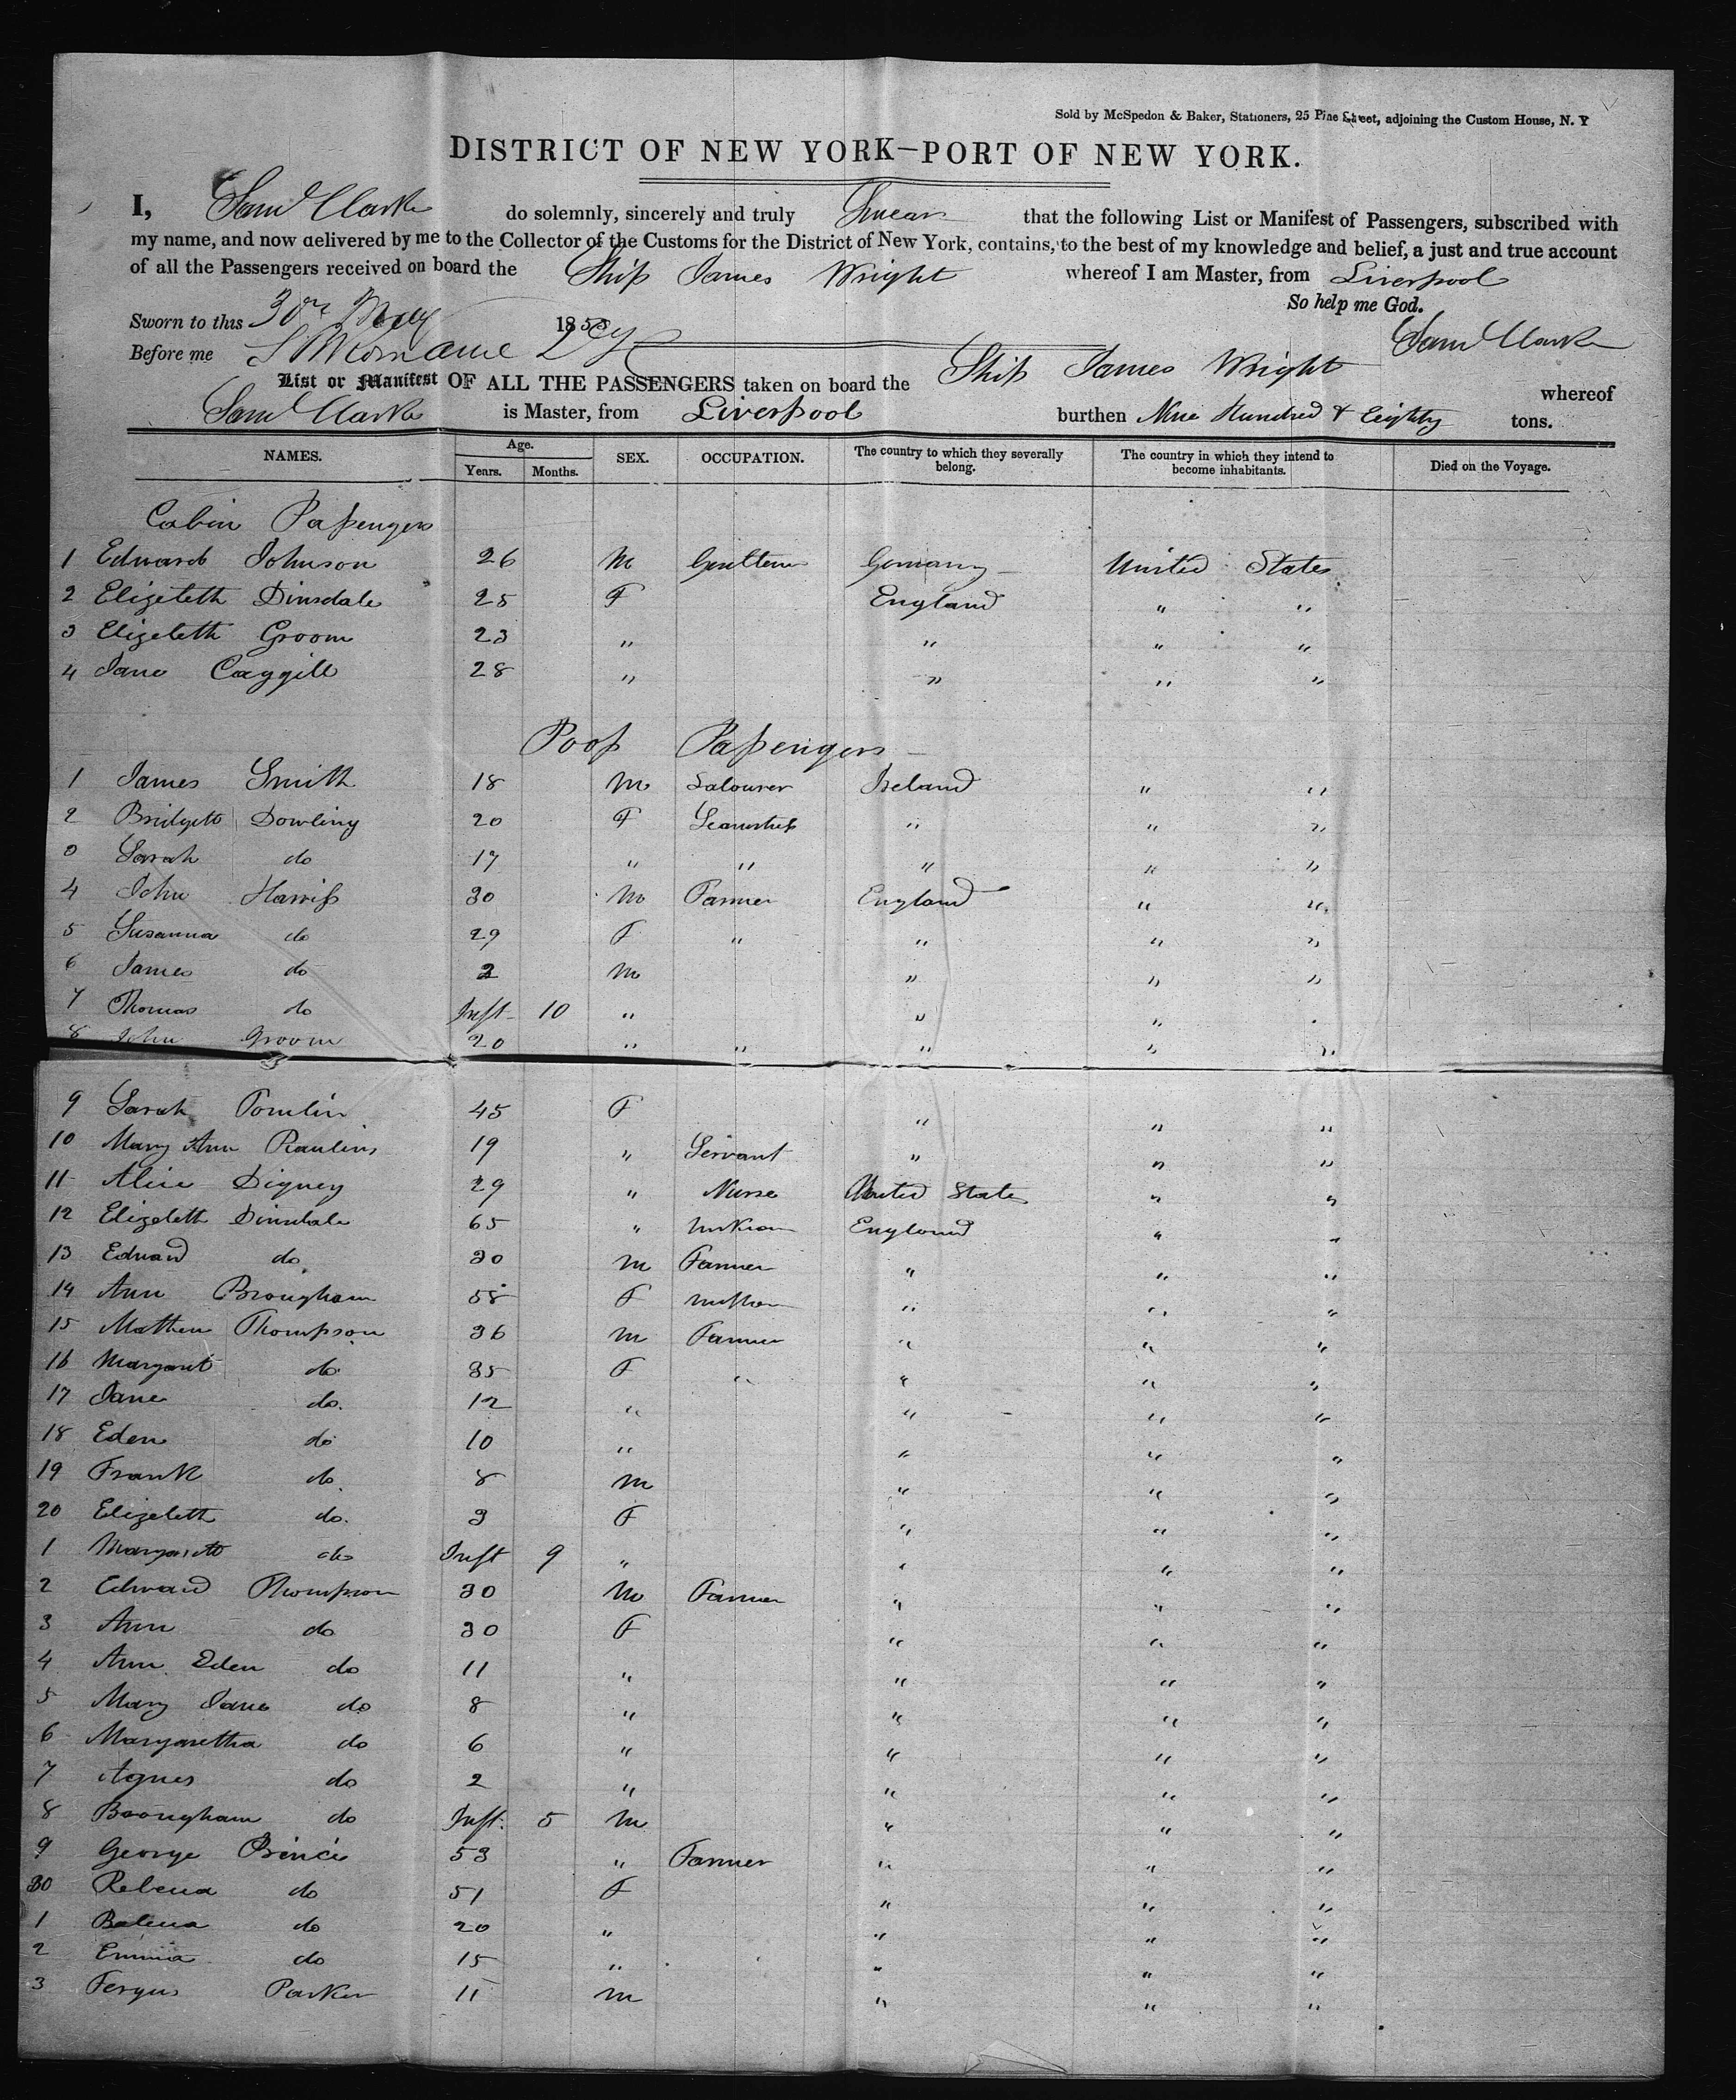 Sold by McSpedon & Baker, Stationers, 25 Pine Street, adjoining the Custom House, N. Y
DISTRICT OF NEW YORK—PORT OF NEW YORK.
I, Saml Clarke do solemnly, sincerely and truly Swear that the following List or Manifest of Passengers, subscribed with
my name, and now delivered by me to the Collector of the Customs for the District of New York, contains, to the best of my knowledge and belief, a just and true account
of all the Passengers received on board the Ship James Wright whereof I am Master, from Liverpool
So help me God.
Sworn to this 30th May 1853
Saml Clarke
Before me
List or Manifest OF ALL THE PASSENGERS taken on board the Ship James Wright whereof
Saml Clarke is Master, from Liverpool burthen Nine Hundred & Eighty tons.
NAMES. Age. Years. Months. SEX. OCCUPATION. The country to which they severally belong. The country in which they intend to become inhabitants. Died on the Voyage.
Cabin Passengers
1 Edward Johnson 26 M Gentleman Germany United States
2 Elizebeth Dinsdale 25 F England " "
3 Elizebeth Groom 23 " " " "
4 Jane Coggill 28 " " " "
Poop Passengers
1 James Smith 18 M Labourer Ireland " "
2 Bridgett Dowling 20 F Seamstress " " "
3 Sarah do 17 " " " " "
4 John Harriss 30 M Farmer England " "
5 Susanna do 29 F " " " "
6 James do 2 M " " "
7 Thomas do Inft 10 " " " "
8 John Groom 20 " " " " "
9 Sarah Tomlin 45 F " " "
10 Mary Ann Raulins 19 " Servant " " "
11 Alice Digney 29 " Nurse United States " "
12 Elizebeth Dinsdale 65 " England " "
13 Edward do 30 M Farmer " " "
14 Ann Brougham 58 F " " "
15 Mathew Thompson 36 M Farmer " " "
16 Margaret do 35 F " " " "
17 Jane do. 12 " " " "
18 Eden do 10 " " " "
19 Frank do. 8 M " " "
20 Elizebeth do. 3 F " " "
1 Margarett do Inft 9 " " " "
2 Edward Thompson 30 M Farmer " " "
3 Ann do 30 F " " "
4 Ann Eden do 11 " " " "
5 Mary Jane do 8 " " " "
6 Margaretha do 6 " " " "
7 Agnes do 2 " " " "
8 Brougham do Inft. 5 M " " "
9 George Prince 53 " Farmer " " "
30 do 51 F " " "
1 do 20 " " " "
2 Emma do 15 " " " "
3 Fergus Parker 11 M " " "